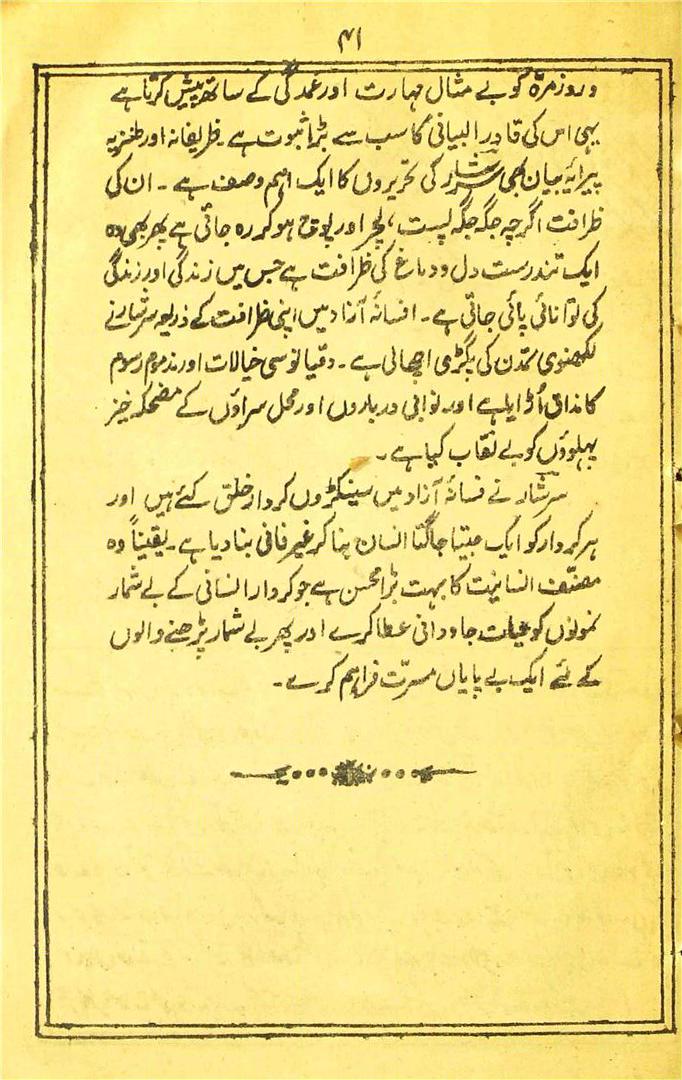 ۴۱
و روزمرّہ کو بے مثال مہارت اور عمدگی کے ساتھ پیش کرتا ہے
یہی اس کی قادر البیانی کا سب سے بڑا ثبوت ہے۔ ظریفانہ اور طنزیہ
پیرایۂ بیان بھی سرشار کی تحریروں کا ایک اہم وصف ہے ۔ ان کی
ظرافت اگرچہ جگہ جگہ پست ، لچر اور پوچ ہو کر رہ جاتی ہے پھر بھی وہ
ایک تندرست دل و دماغ کی ظرافت ہے جس میں زندگی اور زندگی
کی توانائی پائی جاتی ہے ۔ افسانۂ آزاد میں اپنی ظرافت کے ذریعہ سرشار نے
لکھنوی تمدّن کی پگڑی اچھالی ہے ۔ دقیانوسی خیالات اور مذموم رسوم
کا مذاق اُڑایا ہے اور نوابی درباروں اور محل سراؤں کے مضحکہ خیز
پہلوؤں کو بے نقاب کیا ہے ۔
سرشار نے فسانۂ آزاد میں سینکڑوں کردار خلق کئے ہیں اور
ہر کردار کو ایک جیتا جاگتا انسان بنا کر غیر فانی بنا دیا ہے ۔ یقیناً وہ
مصنّف انسانیت کا بہت بڑا محسن ہے جو کردار انسانی کے بے شمار
نمونوں کو حیات جاودانی عطا کرے اور پھر بے شمار پڑھنے والوں
کے لئے ایک بے پایاں مسرّت فراہم کرے ۔